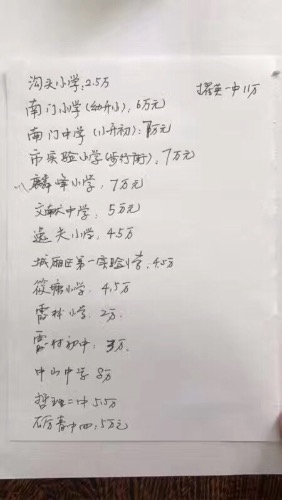 沟头小学:2.5万
擢英一中11万
南门小学(幼升小):6万元
南门中学(小升初):7万元
市实验小学(步行街):7万元
麟峰小学,7万元
文献中学,5万元
逸夫小学,4.5万
城厢区第一实验小学,4.5万
筱塘小学,4.5万
霞林小学:2万
初中:3万
中山中学 8万
哲理二中5.5万
中四:5万元